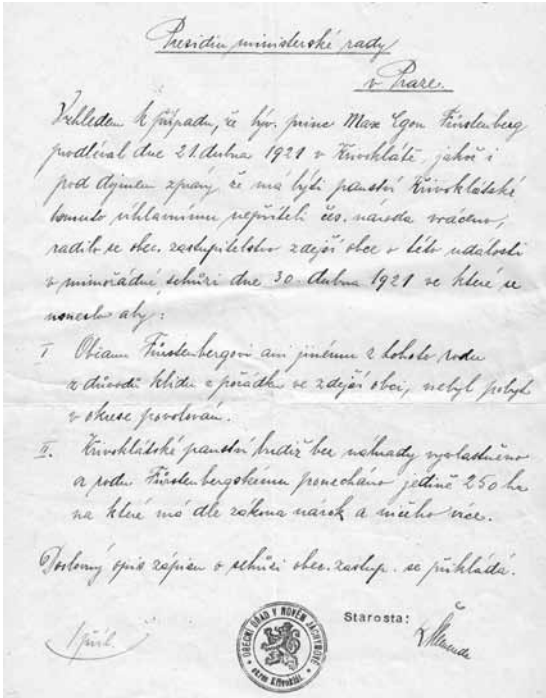 Presidiu ministerské rady
v Praze.
Vzhledem k případu, že býv. princ Max Egon Fürstenberg
prodléval dne 21. dubna 1921 v Křivoklátě, jakož i
pod dojmem zprávy že má býti panství Křivoklátské
tomuto úhlavnímu nepříteli čes. národa vráceno,
radilo se obec. zastupitelstvo zdejší obce o této události
v mimořádné schůzi dne 30. dubna 1921 ve které se
usneslo aby:
I Obianu Fürstenbergovi ani jinému z tohoto rodu
z důvodů klidu a pořádku ve zdejší obci, nebyl pobyt
v okrese povolován.
II. Křivoklátské panství budiž bez náhrady vyvlastněno
a rodu Fürstenbergskému ponecháno jedině 250 ha
na které má dle zákona nárok a ničeho více.
Doslovný opis zápisu o schůzi obec. zastup. se přikládá.
1 příl.
OBECNÍ ÚŘAD V NOVÉM JÁCHYMOVĚ
okres Křivoklát
Starosta: